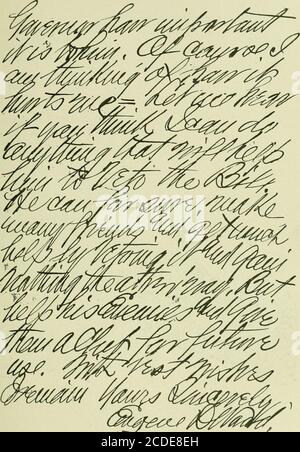 Governor how important
it is to him. Of course I
am thinking of how it
hurts me = Let me hear
if you think I can do
anything that will help
him to Veto the Bill,
He can for sure make
many friends and get much
help by vetoing it and gain
Nothing the other way. But
help his Enemies and Give
them a Club for future
use. With Best Wishes
I remain Yours Sincerely
Eugene D Wood
alamy
2CDE8EH